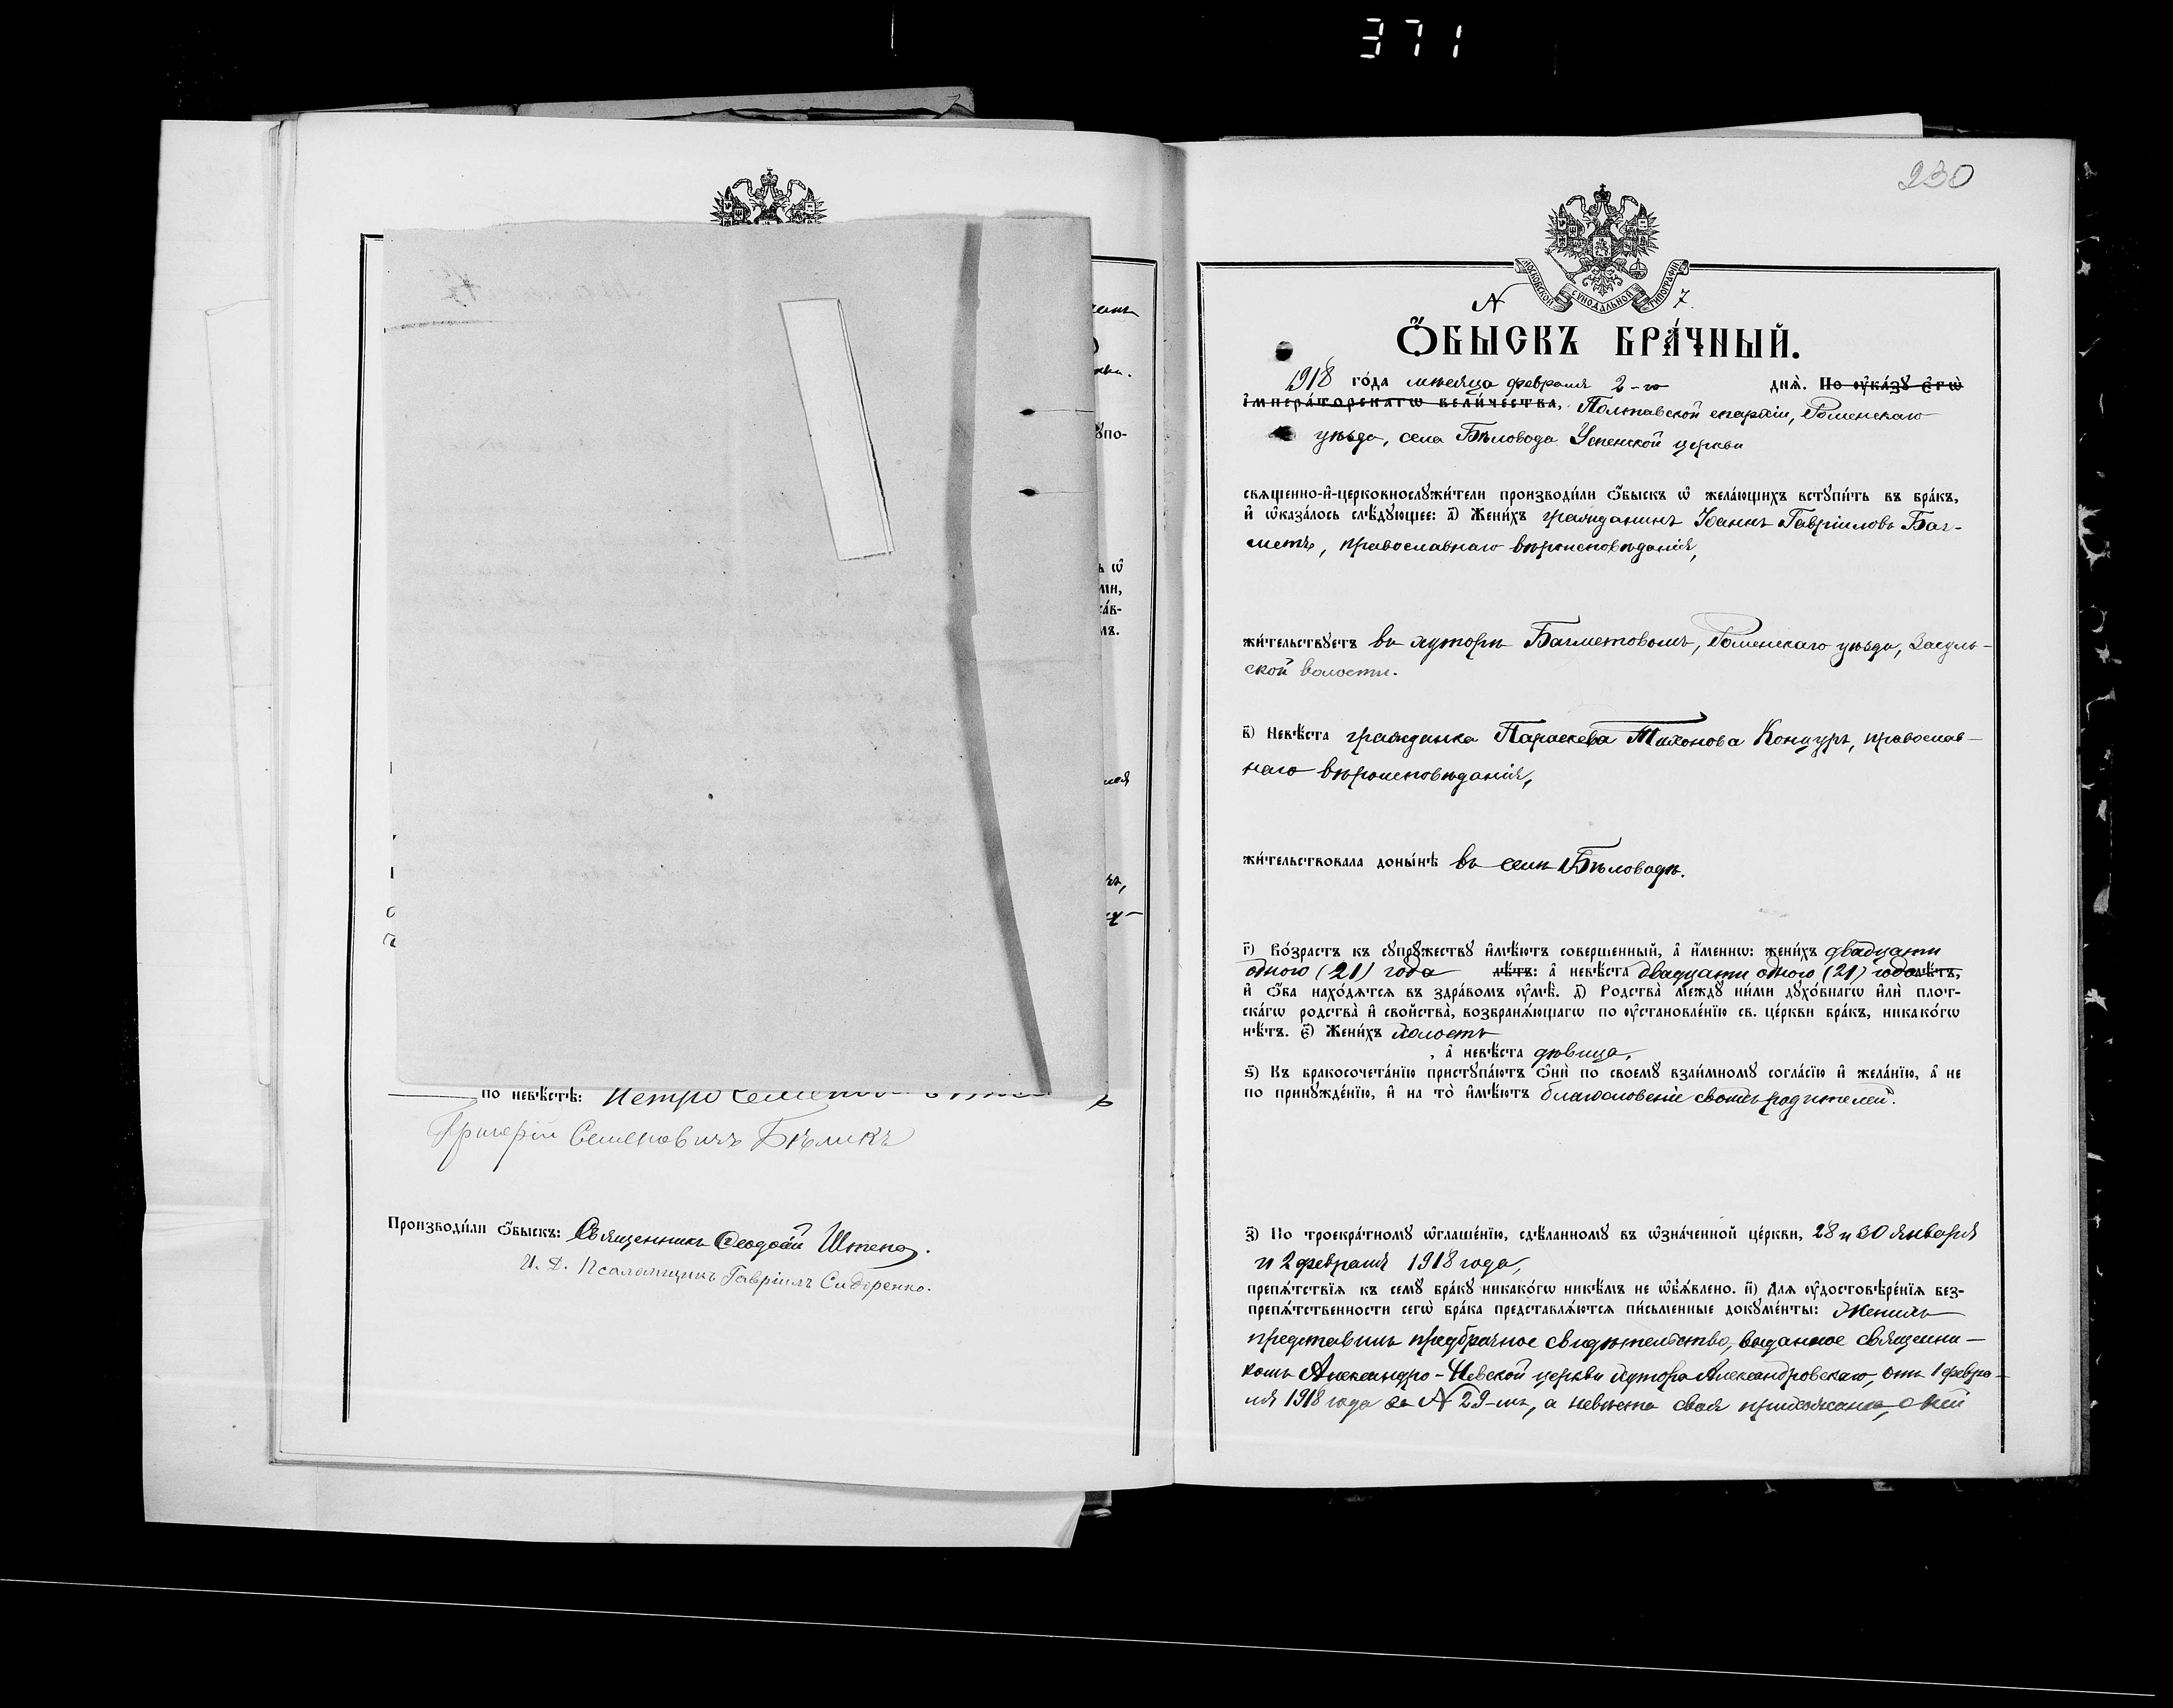 371
230
МОСКОВСКОЙ СѴНОДАЛЬНОЙ ТИПОГРАФІИ
№ 7.
Ѻ҆БЫСКЪ БРА́ЧНЫЙ.
1918 го́да мѣсяца февраля 2-го днѧ̀. По ᲂу҆ка́зꙋ є҆гѡ̀
і҆мпера́торскагѡ вели́чества, Полтавской епархіи, Роменскаго
уѣзда, села Бѣловода Успенской церкви
свѧщенно-и҆-церковнослꙋжи́тели производи́ли ѻ҆быскъ ѡ҆ жела́ющихъ встꙋпи́ть въ бра́къ,
и҆ ѡ҆каза́лось слѣ́дꙋющее: а҃) Жени́хъ гражданинъ Іоаннъ Гавріиловъ Баг-
метъ, православнаго вѣроисповѣданія,
жи́тельствꙋетъ въ хуторѣ Багметовомъ, Роменскаго уѣзда, Засуль-
ской волости.
в҃) Невѣ́ста гражданка Параскева Тихонова Концуръ, православ-
наго вѣроисповѣданія,
жи́тельствовала доны́нѣ въ селѣ Бѣловодѣ.
г҃) Во́зрастъ къ сꙋпрꙋ́жествꙋ и҆мѣ́ютъ соверше́нный, а҆ и҆́меннѡ: жени́хъ двадцати
одного (21) года лѣ́тъ: а҆ невѣ́ста двадцати одного (21) года лѣ́тъ,
и҆ ѻ҆́ба нахо́дѧтсѧ въ здра́вомъ ᲂу҆мѣ̀. д҃) Родства̀ ме́ждꙋ ни́ми дꙋхо́внагѡ и҆лѝ плот-
ска́гѡ родства̀ и҆ свойства̀, возбранѧ́ющагѡ по ᲂу҆становле́нїю св. це́ркви бра́къ, никако́гѡ
нѣ́тъ. є҃) Жени́хъ холостъ
, а҆ невѣ́ста дѣвица.
ѕ҃) Къ бракосочета́нїю пристꙋпа́ютъ ѻ҆нѝ по своемꙋ̀ взаи́мномꙋ согла́сїю и҆ жела́нїю, а҆ не
по принꙋжде́нїю, и҆ на то̀ и҆мѣ́ютъ благословеніе своихъ родителей.
з҃) По троекра́тномꙋ ѡ҆глаше́нїю, сдѣ́ланномꙋ въ ѡ҆зна́ченной це́ркви, 28 и 30 января
и 2 февраля 1918 года,
препѧ́тствїѧ къ семꙋ̀ бра́кꙋ никако́гѡ никѣ́мъ не ѡ҆б̾ѧ́влено. и҃) Длѧ ᲂу҆достовѣре́нїѧ без-
препѧ́тственности сегѡ̀ бра́ка представлѧ́ютсѧ пи́сьменные докꙋме́нты: Женихъ
представилъ предбрачное свидѣтельство, выданное священни-
комъ Александро-Невской церкви хутора Александровскаго, отъ 1 февра-
ля 1918 года за № 29-мъ, а невѣста своя прихожанка,
по невѣ́стѣ: Петро
Григорій Семеновичъ Бѣликъ
Производи́ли ѻ҆́быскъ: Священникъ Ѳеодосій Штепа.
И. д. Псаломщикъ Гавріилъ Сидоренко.